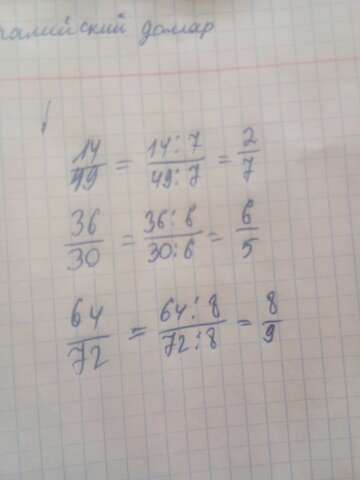 доллар
14/49 = 14:7/49:7 = 2/7
36/30 = 36:6/30:6 = 6/5
64/72 = 64:8/72:8 = 8/9